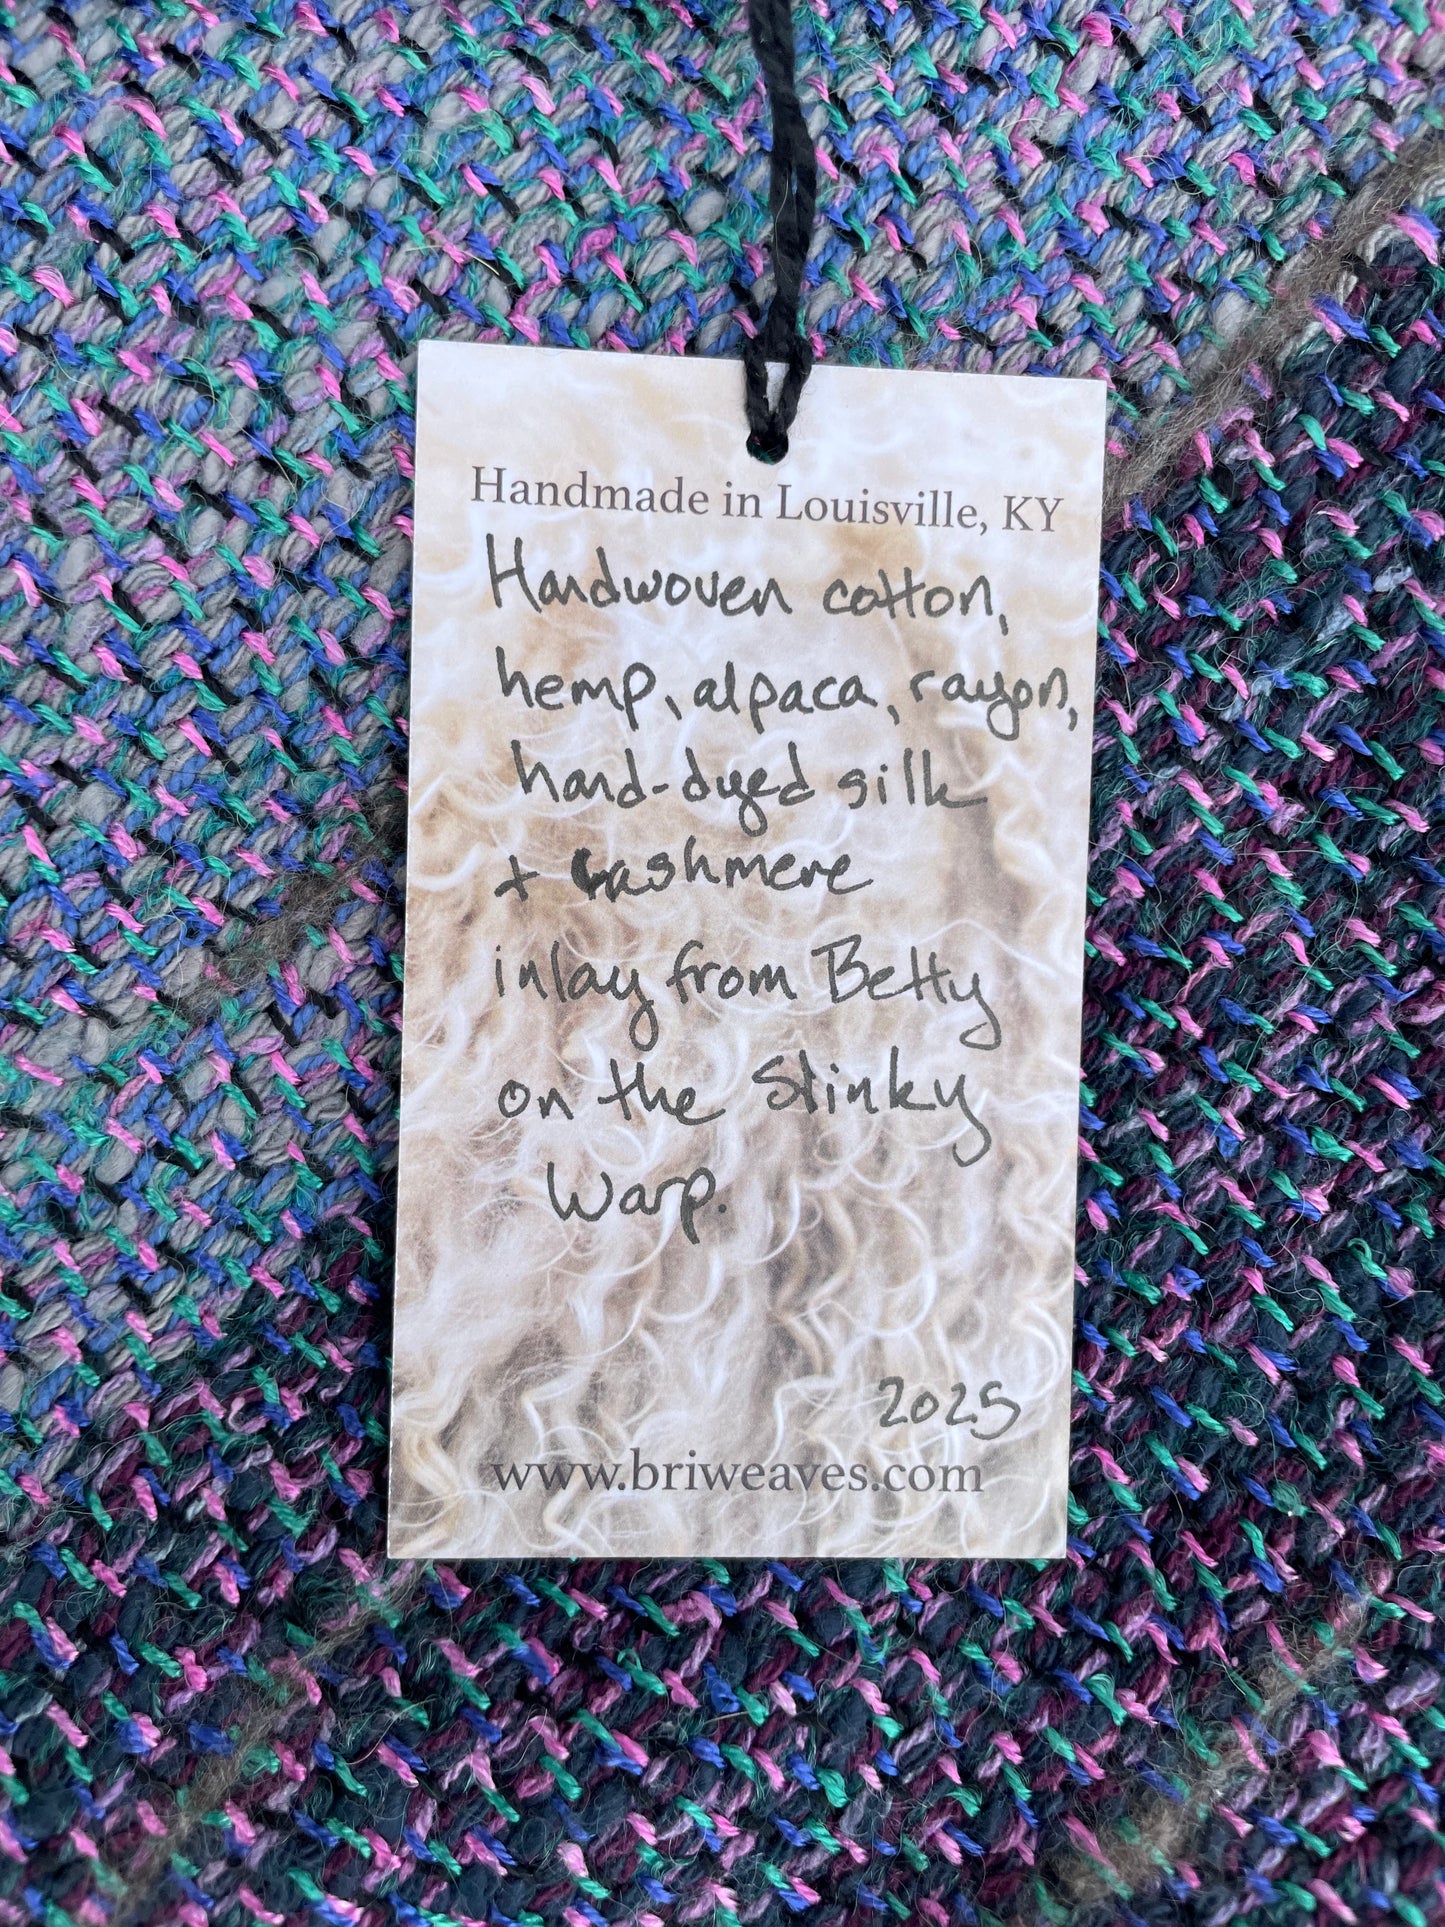 Handmade in Louisville, KY
Handwoven cotton,
hemp, alpaca, rayon,
hand-dyed silk
+ cashmere
inlay from Betty
on the Slinky
Warp.
2025
www.briweaves.com